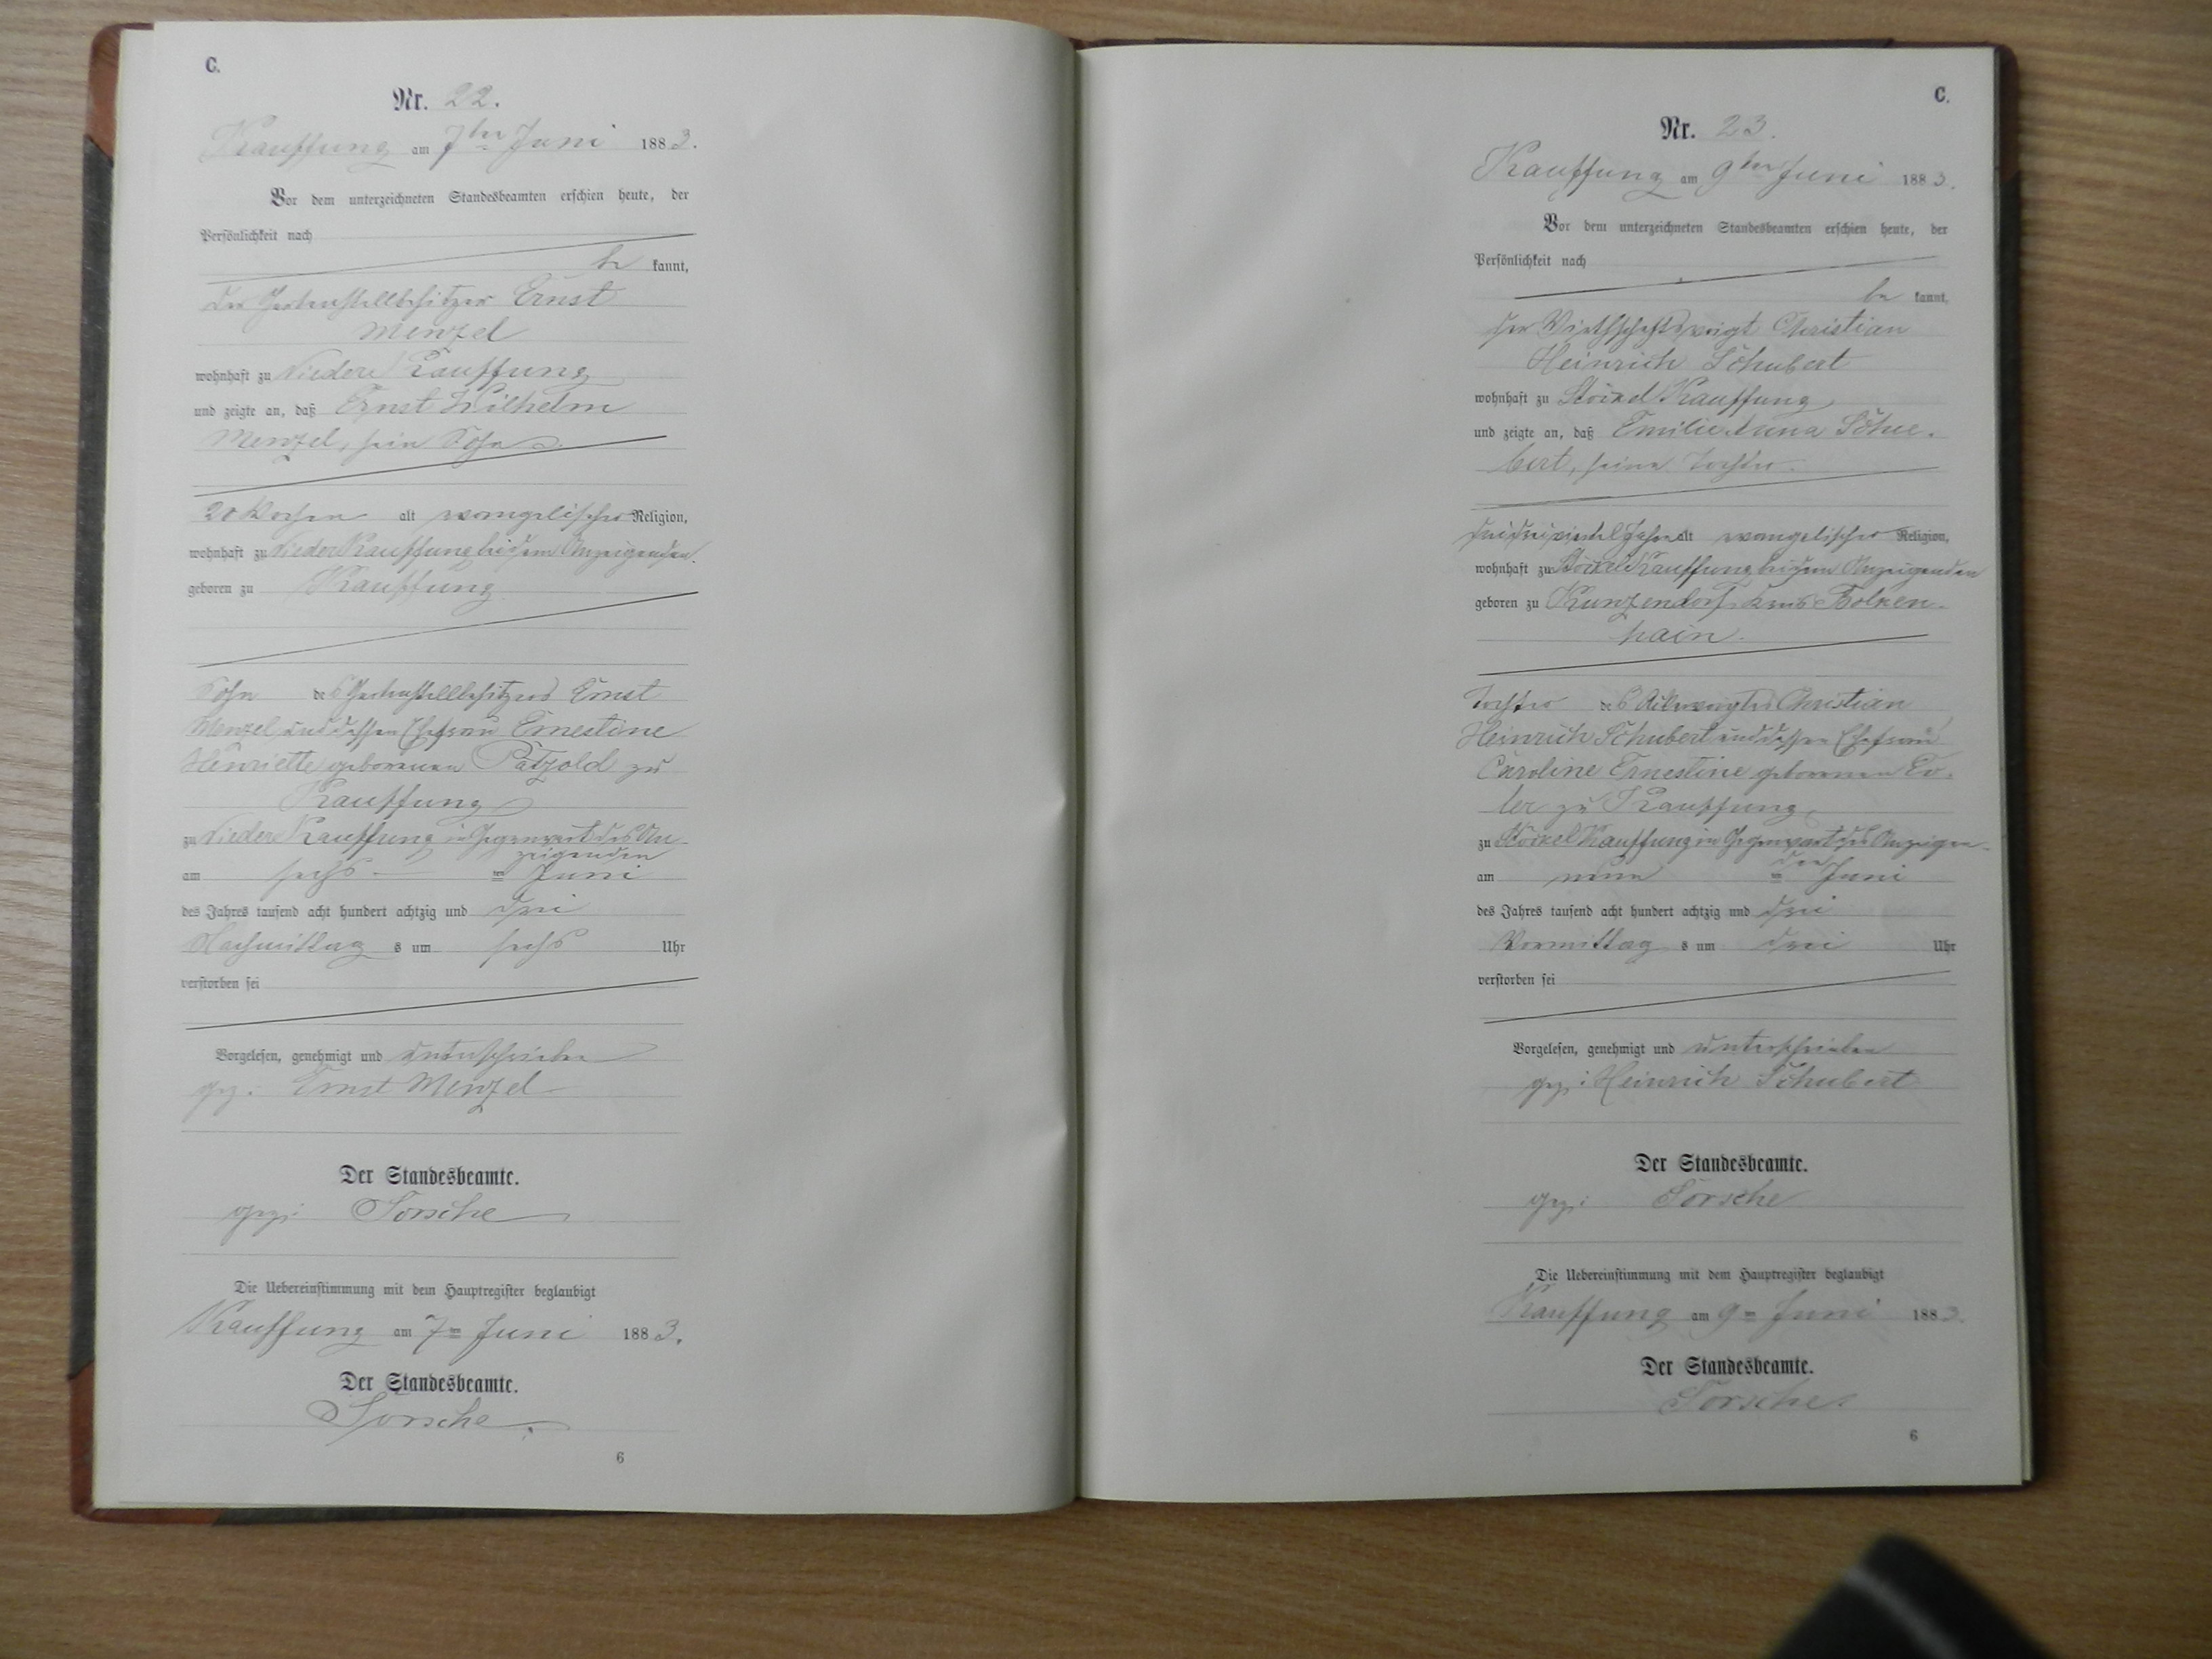 C.
Nr. 22.
Kauffung am 7ten Juni 1883.
Vor dem unterzeichneten Standesbeamten erschien heute, der
Persönlichkeit nach
be kannt,
der Gartenstellbesitzer Ernst
Menzel
wohnhaft zu Nieder Kauffung
und zeigte an, daß Ernst Wilhelm
Menzel, sein Sohn
20 Wochen alt evangelischer Religion,
wohnhaft zu Nieder Kauffung bei dem Anzeigenden.
geboren zu Kauffung
Sohn des Gartenstellbesitzers Ernst
Menzel und dessen Ehefrau Ernestine
Henriette geborenen Pätzold zu
Kauffung
zu Nieder Kauffung in Gegenwart des An-
zeigenden
am sechs ten Juni
des Jahres tausend acht hundert achtzig und drei
Nachmittag s um sechs Uhr
verstorben sei
Vorgelesen, genehmigt und unterschrieben
gez: Ernst Menzel
Der Standesbeamte.
gez: Sorsche
Die Uebereinstimmung mit dem Hauptregister beglaubigt
Kauffung am 7ten Juni 1883.
Der Standesbeamte.
Sorsche.
6
C.
Nr. 23.
Kauffung am 9ten Juni 1883.
Vor dem unterzeichneten Standesbeamten erschien heute, der
Persönlichkeit nach
be kannt,
der Wirthschaftsvoigt Christian
Heinrich Schubert
wohnhaft zu Stöckel Kauffung
und zeigte an, daß Emilie Anna Schu-
bert, seine Tochter
dreiviertel Jahre alt evangelischer Religion,
wohnhaft zu Stöckel Kauffung bei dem Anzeigenden
geboren zu Kunzendorf Kreis Bolken-
hain.
Tochter des Christian
Heinrich Schubert und dessen Ehefrau
Caroline Ernestine geborenen
zu Kauffung
zu Stöckel Kauffung in Gegenwart des Anzeigen-
den
am neun ten Juni
des Jahres tausend acht hundert achtzig und drei
Vormittag s um drei Uhr
verstorben sei
Vorgelesen, genehmigt und unterschrieben
gez: Heinrich Schubert
Der Standesbeamte.
gez: Sorsche
Die Uebereinstimmung mit dem Hauptregister beglaubigt
Kauffung am 9ten Juni 1883.
Der Standesbeamte.
Sorsche.
6